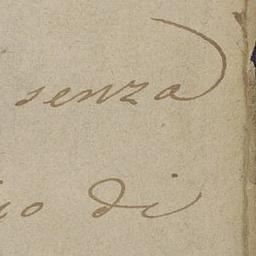 senza
io di